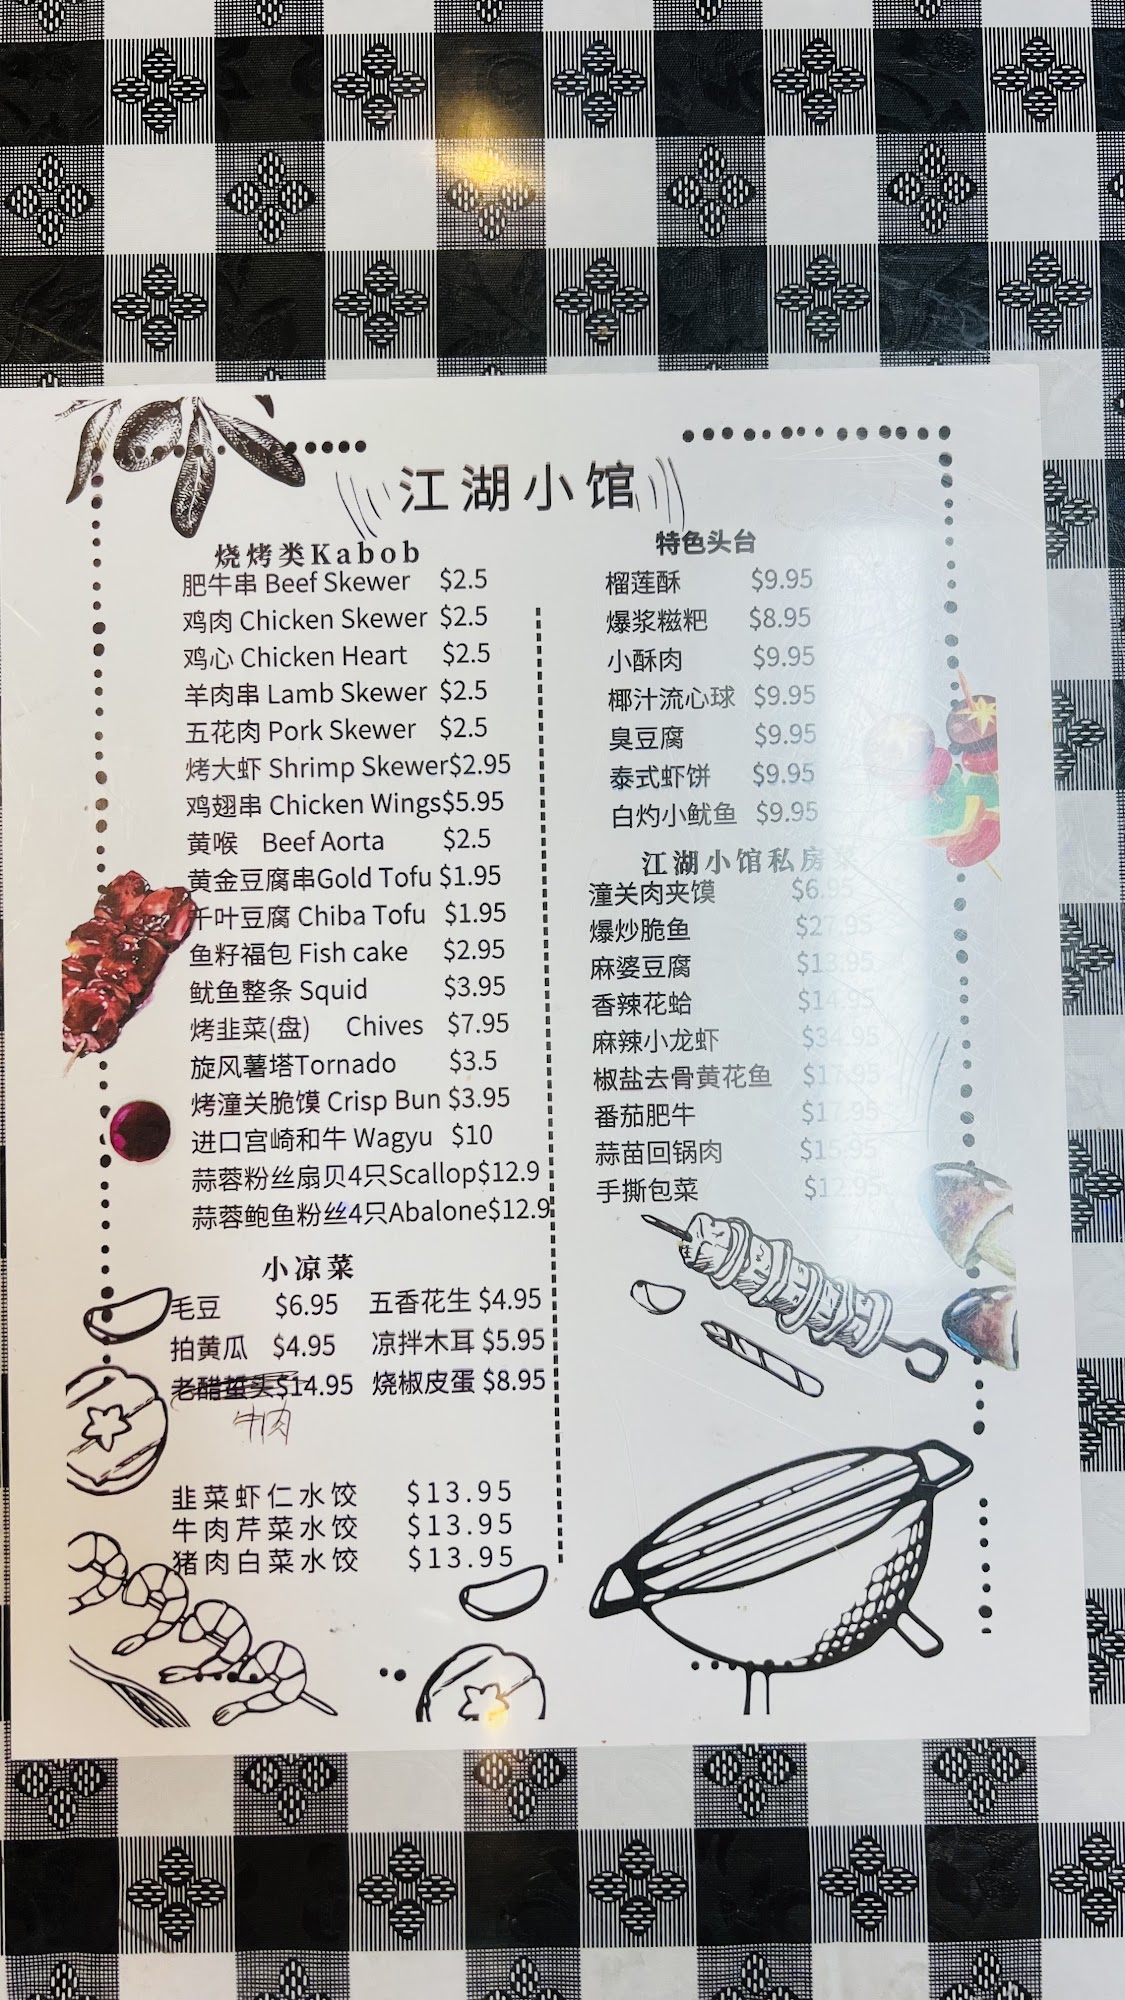 江湖小馆
烧烤类Kabob
肥牛串 Beef Skewer $2.5
鸡肉 Chicken Skewer $2.5
鸡心 Chicken Heart $2.5
羊肉串 Lamb Skewer $2.5
五花肉 Pork Skewer $2.5
烤大虾 Shrimp Skewer$2.95
鸡翅串 Chicken Wings$5.95
黄喉 Beef Aorta $2.5
黄金豆腐串Gold Tofu $1.95
千叶豆腐 Chiba Tofu $1.95
鱼籽福包 Fish cake $2.95
鱿鱼整条 Squid $3.95
烤韭菜(盘) Chives $7.95
旋风薯塔Tornado $3.5
烤潼关脆馍 Crisp Bun $3.95
进口宫崎和牛 Wagyu $10
蒜蓉粉丝扇贝4只Scallop$12.9
蒜蓉鲍鱼粉丝4只Abalone$12.9
小凉菜
毛豆 $6.95 五香花生 $4.95
拍黄瓜 $4.95 凉拌木耳 $5.95
老醋蜇头$14.95 烧椒皮蛋 $8.95
牛肉
韭菜虾仁水饺 $13.95
牛肉芹菜水饺 $13.95
猪肉白菜水饺 $13.95
特色头台
榴莲酥 $9.95
爆浆糍粑 $8.95
小酥肉 $9.95
椰汁流心球 $9.95
臭豆腐 $9.95
泰式虾饼 $9.95
白灼小鱿鱼 $9.95
江湖小馆私房菜
潼关肉夹馍 $6.95
爆炒脆鱼 $27.95
麻婆豆腐 $13.95
香辣花蛤 $14.95
麻辣小龙虾 $34.95
椒盐去骨黄花鱼 $17.95
番茄肥牛 $17.95
蒜苗回锅肉 $15.95
手撕包菜 $12.95